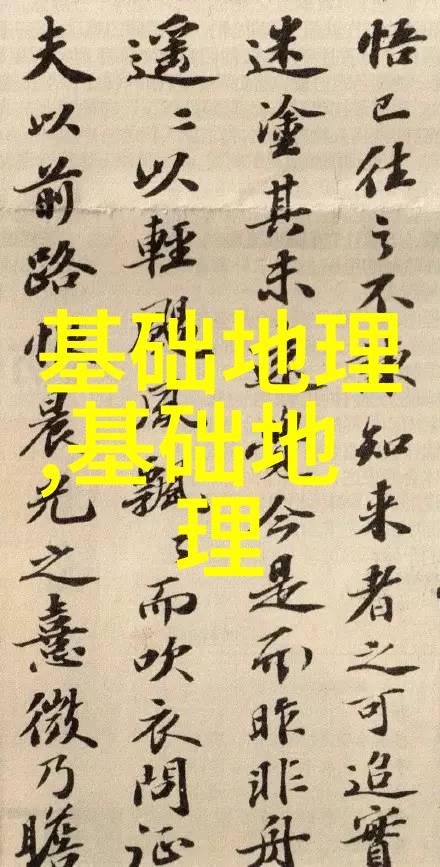 悟已往之不知来者之可追實
迷塗其未遠覺今是而昨非舟
遥〻以輕颺風飄〻而吹衣問征
夫以前路恨晨光之熹微乃瞻
基础地理
,基础地
理